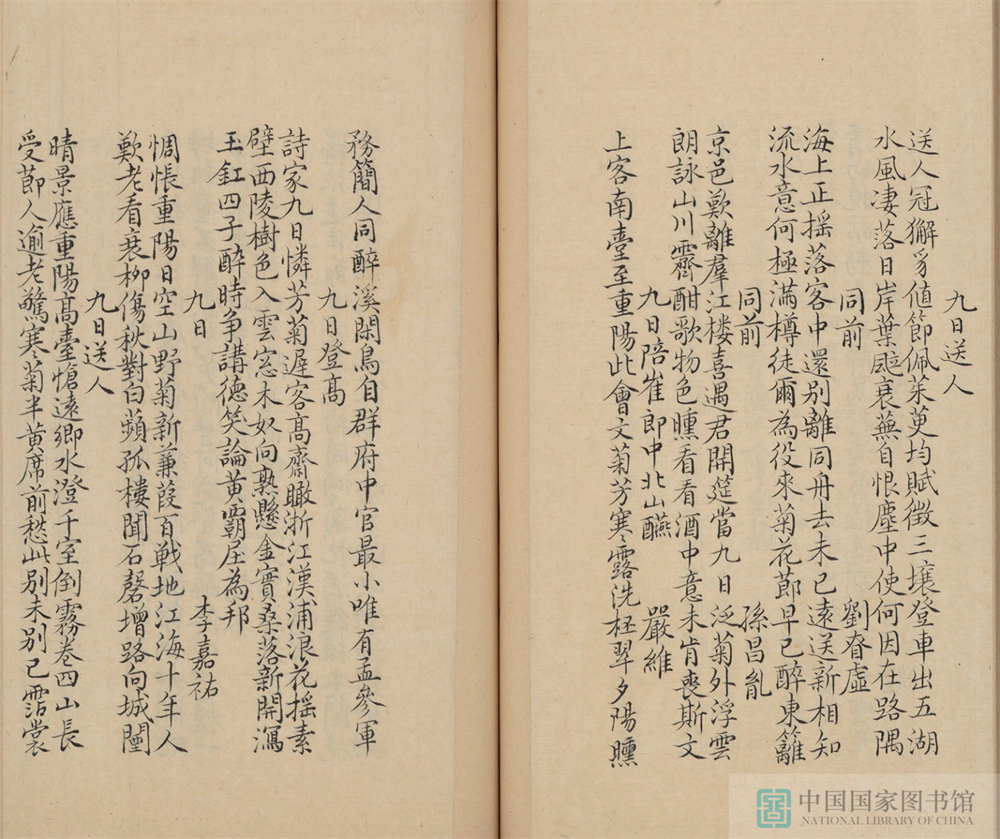 九日送人
送人冠獬豸值節佩茱萸均賦徵三壤登車出五湖
水風凄落日岸葉颭衰蕪自恨塵中使何因在路隅
同前 劉眘虛
海上正摇落客中還别離同舟去未已遠送新相知
流水意何極滿樽徒爾為役來菊花節早已醉東籬
同前 孫昌胤
京邑歎離羣江楼喜遇君開筵當九日泛菊外浮雲
朗詠山川霽酣歌物色曛看看酒中意未肯喪斯文
九日陪崔郎中北山醼 嚴維
上客南臺至重陽此會文菊芳寒露洗杯翠夕陽曛
務簡人同醉溪閑鳥自群府中官最小唯有孟參軍
九日登高
詩家九日憐芳菊遲客高齋瞰浙江漢浦浪花摇素
壁西陵樹色入雲窓木奴向熟懸金實桑落新開瀉
玉缸四子醉時争講德笑論黄霸屈為邦
九日 李嘉祐
惆悵重陽日空山野菊新蒹葭百戦地江海十年人
歎老看衰柳傷秋對白蘋孤樓聞石磬增路向城闉
九日送人
晴景應重陽高臺愴遠鄉水澄千室倒霧卷四山長
受節人逾老驚寒菊半黄席前愁此別未別已霑裳
中国国家图书馆
NATIONAL LIBRARY OF CHINA